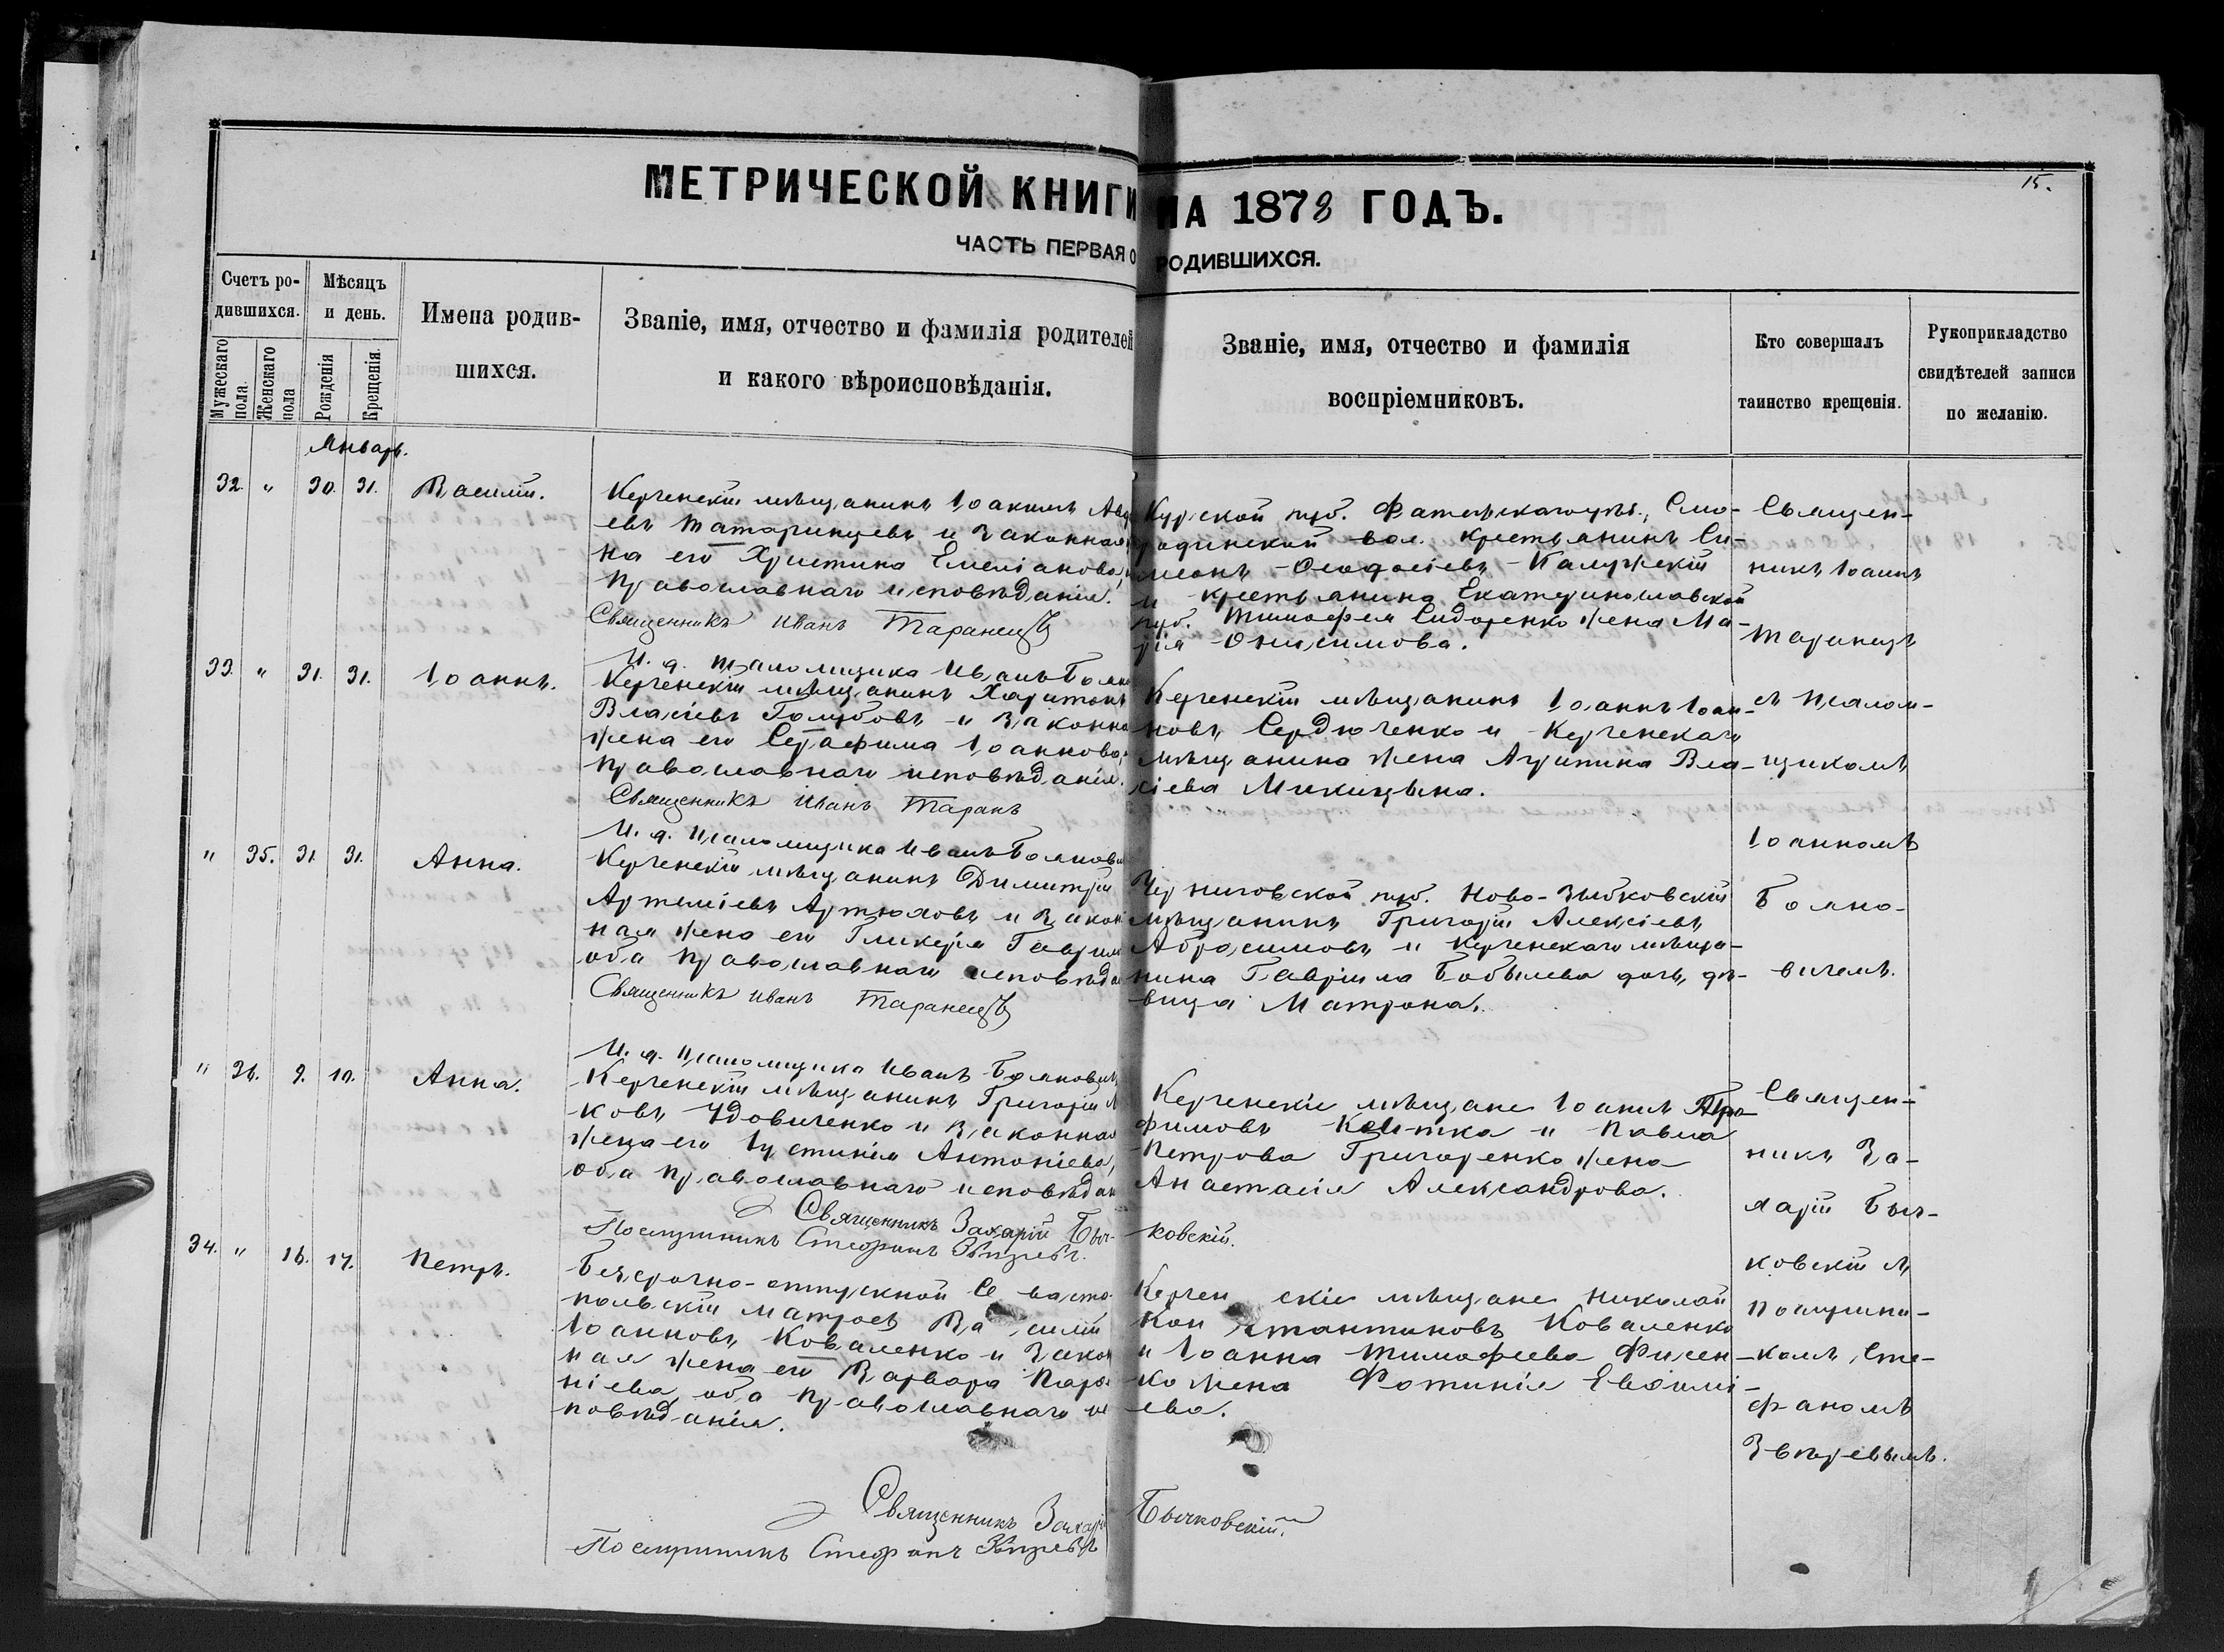 15.
МЕТРИЧЕСКОЙ КНИГИ НА 1878 ГОДЪ.
ЧАСТЬ ПЕРВАЯ О РОДИВШИХСЯ.
Счетъ ро-
дившихся.
Мужескаго пола.
Женскаго пола
Мѣсяцъ
и день.
Рожденія
Крещенія.
Имена родив-
шихся.
Званіе, имя, отчество и фамилія родителей
и какого вѣроисповѣданія.
Званіе, имя, отчество и фамилія
воспріемниковъ.
Кто совершалъ
таинство крещенія.
Рукоприкладство
свидѣтелей записи
по желанію.
Январь.
32. " 30. 31. Василій.
Керченскій мѣщанинъ Іоакимъ
евъ Татаринцевъ и законная
на его Христина Емеліанова,
православнаго исповѣданія.
Священникъ Иванъ Таранецъ
И. д. псаломщика Иванъ
Курской губ. Фатежскаго уѣз., Смо-
родинской вол. крестьянинъ Си-
меонъ Ѳеодосіевъ Калужскій
и крестьянина Екатеринославской
губ. Тимофея Сидоренко жена Ма-
рія Онисимова.
Священ-
никъ Іоаннъ
Таранецъ
33. " 31. 31. Іоаннъ.
Керченскій мѣщанинъ Харитонъ
Власіевъ Голубовъ и законна
жена его Серафима Іоаннова,
православнаго исповѣданія.
Священникъ Иванъ Таранъ
И. д. псаломщика Иванъ Боянови
Керченскій мѣщанинъ Іоаннъ Іоан-
новъ Сердюченко и Керченскаго
мѣщанина жена Агрипина Вла-
сіева Микицына.
съ псалом-
щикомъ
Іоанномъ
Бояно-
вичемъ.
" 35. 31. 31. Анна.
Керченскій мѣщанинъ Димитрій
Артеміевъ Артюховъ и закон
ная жена его Гликерія Гаврил
оба православнаго исповѣда
Священникъ Иванъ Таранецъ
И. д. псаломщика Иванъ Бояновичъ
Черниговской губ. Ново-Зыбковскій
мѣщанинъ Григорій Алексіевъ
Абросимовъ и Керченскаго мѣща-
нина Гавріила Бобылева дочь, дѣ-
вица Матрона.
" 36. 9. 10. Анна.
Керченскій мѣщанинъ Григорій
ковъ Удовиченко и законная
жена его Іустинія Антоніева,
оба православнаго исповѣдан
Священникъ Захарій Быч-
ковскій.
Послушникъ Стефанъ Звѣревъ.
Керченскіе мѣщане Іоаннъ Тро-
фимовъ и Павла
Петрова Григоренко жена
Анастасія Александрова.
Священ-
никъ За-
харій Быч-
ковскій съ
послушни-
комъ Сте-
фаномъ
Звѣревымъ.
34. " 16. 17. Петръ.
Безсрочно-отпускной Севасто
польскій матросъ Василій
Іоанновъ Коваленко и закон
ная жена его Варвара
ніева, оба православнаго ис
повѣданія.
Керченскіе мѣщане Николай
Константиновъ Коваленко
и Іоанна Тимофеева Фисен-
ко жена Фотинія Евѳимі-
ева.
Священникъ Захарій Бычковскій.
Послушникъ Стефанъ Звѣревъ